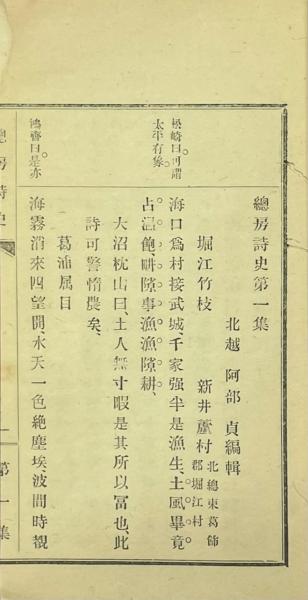 總房詩史第一集
北越 阿部 貞編輯
堀江竹枝 新井蘆村 北總東葛飾郡堀江村
海口爲村接武城千家强半是漁生、土風畢竟
占温飽畊隙事漁漁隙耕、
大沼枕山曰、土人無寸暇是其所以冨也、此
詩可警惰農矣、
葛浦属目
海霧消來四望開、水天一色絶塵埃、波間時覩
松崎曰可謂
太平有象。
鴻齋曰。是亦
總房詩史
第一集